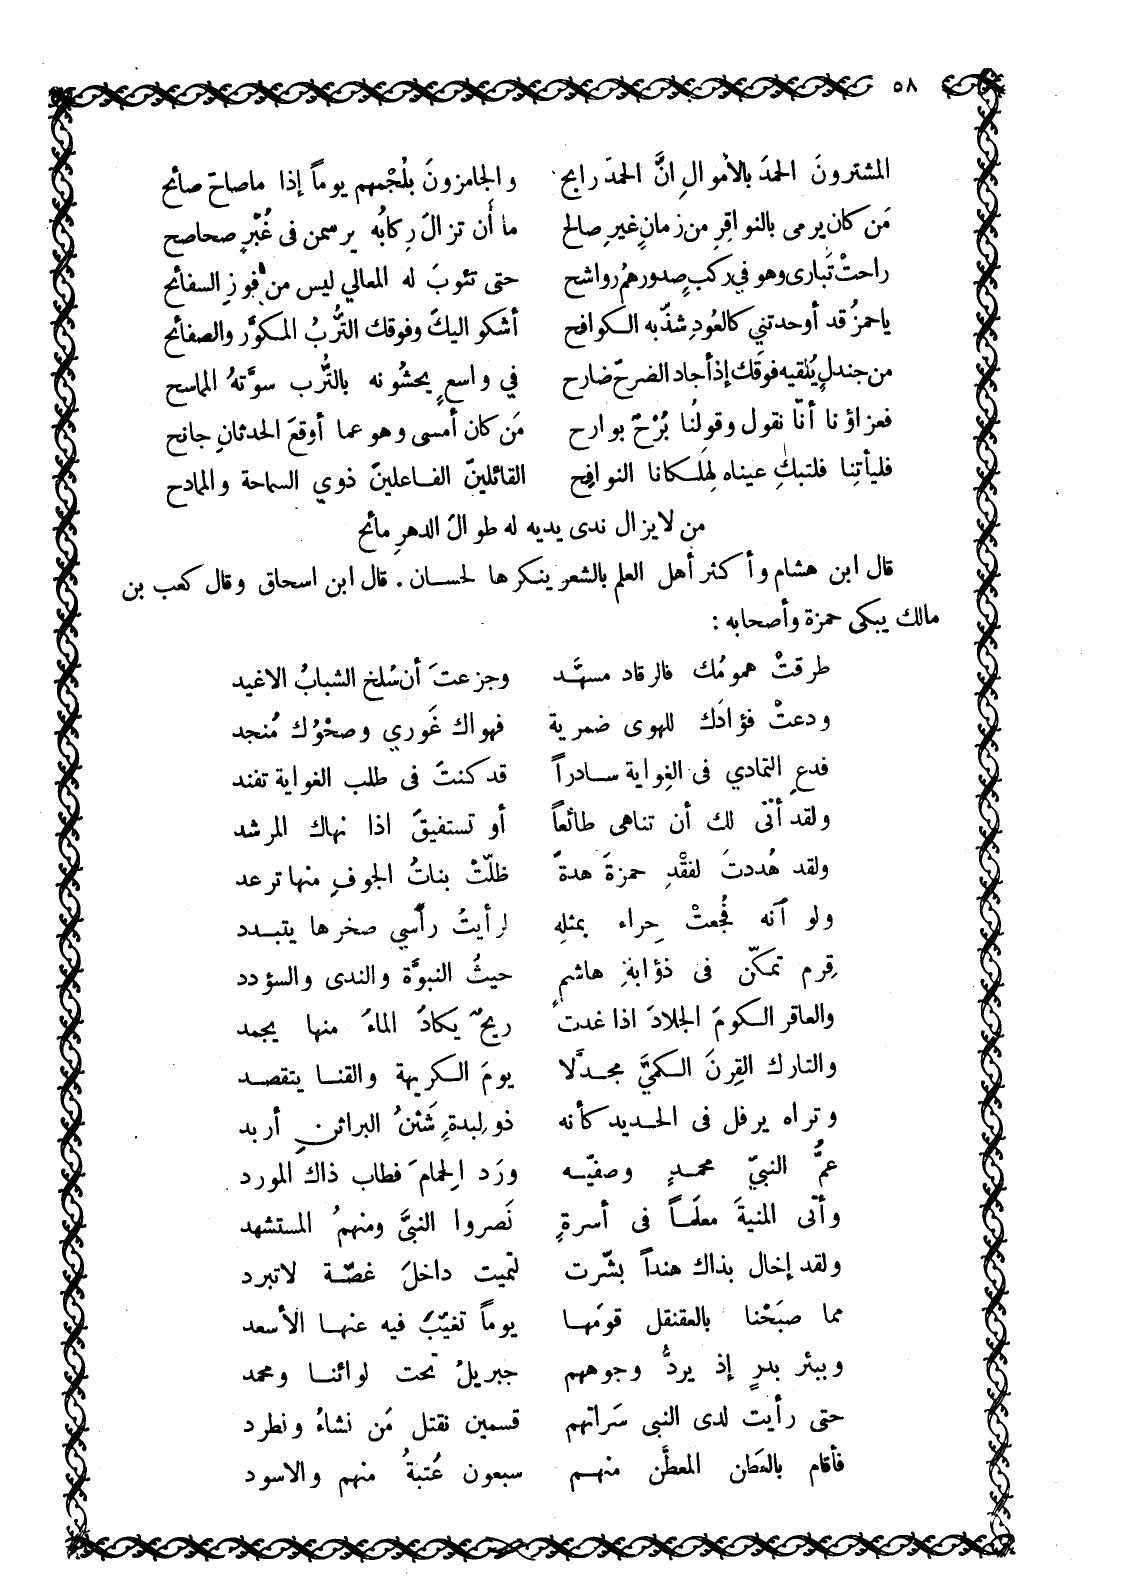 ٥٨
المشترونَ الحمدَ بالأموالِ انَّ الحمدَ رابح والجامزونَ بلُجْمهم يوماً إذا ماصاحَ صائح
مَن كان يرمى بالنواقِرِ من زمانٍ غيرِ صالح ما أن تزالَ رِكابُه يرسمن فى غُبْرٍ صحاصح
راحتْ تَبارى وهو في ركبٍ صدورهمُ رواشح حتى تئوبَ له المعالي ليس من فوزِ السفائح
ياحمزُ قد أوحدتني كالعُودِ شذّبه الكوافح أشكو اليكَ وفوقك التُّربُ المكوَّر والصفائح
من جندلٍ يُلقيه فوقَك إذ أجاد الضرحَ ضارح في واسعٍ يحشُونه بالتُّرب سوَّتهُ المماسح
فعزاؤنا أنّا نقول وقولُنا بُرْحٌ بوارح مَن كان أمسى وهو عما أوقعَ الحدثانِ جانح
فليأتِنا فلتبكِ عيناه لِهلكانا النوافِح القائلينَ الفاعلينَ ذوي السماحة والممادح
من لايزال ندى يديه له طوالَ الدهرِ مائح
قال ابن هشام وأكثر أهل العلم بالشعر ينكرها لحسان . قال ابن اسحاق وقال كعب بن
مالك يبكى حمزة وأصحابه :
طرقتْ همومُك فالرقاد مسهَّد وجزعتَ أن سُلخ الشبابُ الاغيد
ودعتْ فؤادَك للهوى ضمرية فهواك غَوري وصحْوُك مُنجد
فدعِ التمادي فى الغِواية سادراً قد كنتَ فى طلب الغواية تفند
ولقد أنّى لك أن تناهى طائعاً أو تستفيقَ اذا نهاك المرشد
ولقد هُددتَ لفقْدِ حمزةَ هدةً ظلّتْ بناتُ الجوفِ منها ترعد
ولو آنه فُجعتْ حِراء بمثلِه لرأيتُ رأسي صخرها يتبدد
قِرم تمكّن فى ذؤابةِ هاشمٍ حيثُ النبوَّة والندى والسؤدد
والعاقر الكومَ الجلادَ اذا غدتْ ريحٌ يكادُ الماءُ منها يجمد
والتارك القِرنَ الكميَّ مجدَّلا يومَ الكريهة والقنا يتقصد
وتراه يرفل فى الحديد كأنه ذو لِبدةٍ شَثنُ البراثنِ أربد
عمُّ النبيّ محمدٍ وصفيّه ورَد الِحمامَ فطاب ذاك المورد
وأتى المنيةَ معلَماً فى أسرةٍ نَصروا النبيَّ ومنهمُ المستشهد
ولقد إخال بذاك هنداً بشّرت لتميت داخلَ غصّة لاتبرد
مما صبَحْنا بالعقنقل قومَها يوماً تغيّبَ فيه عنها الأسعد
وببئر بدرٍ إذ يردُّ وجوههم جبريلُ تحت لوائنا ومحمد
حتى رأيت لدى النبى سَراتهم قسمين نقتل مَن نشاءُ ونطرد
فأقام بالعَطن المعطَّن منهم سبعون عُتبةُ منهم والاسود